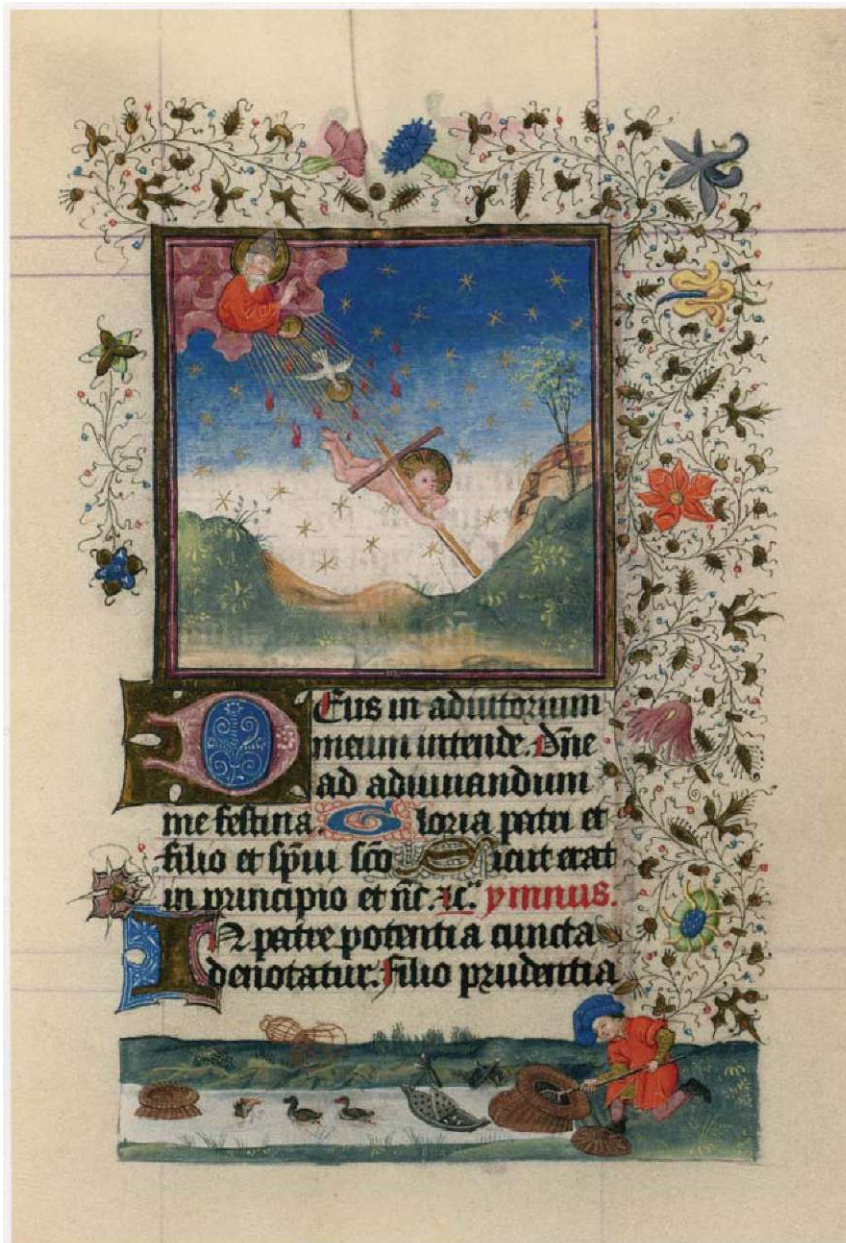 Deus in adiutorium
meum intende. Dñe
ad adiuuandum
me festina. Gloria patri et
filio et sp̃iu sc̃o Sicut erat
in principio et ñc. ⁊c̃. ymnus.
In patre potentia cuncta
denotatur. filio prudentia